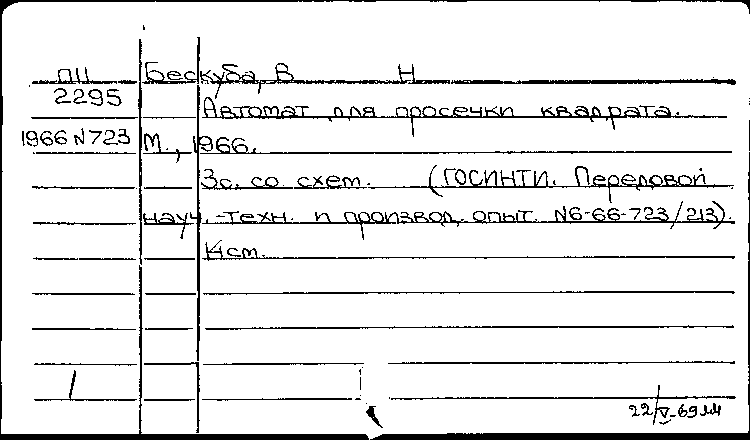 ПЦ Бескуба, В Н
2295 Автомат для просечки квадрата.
1966 N723 М., 1966.
3с. со схем. (ГОСИНТИ. Передовой
науч.-техн. и производ. опыт. N6-66-723/213).
14 cm.
22/V-69